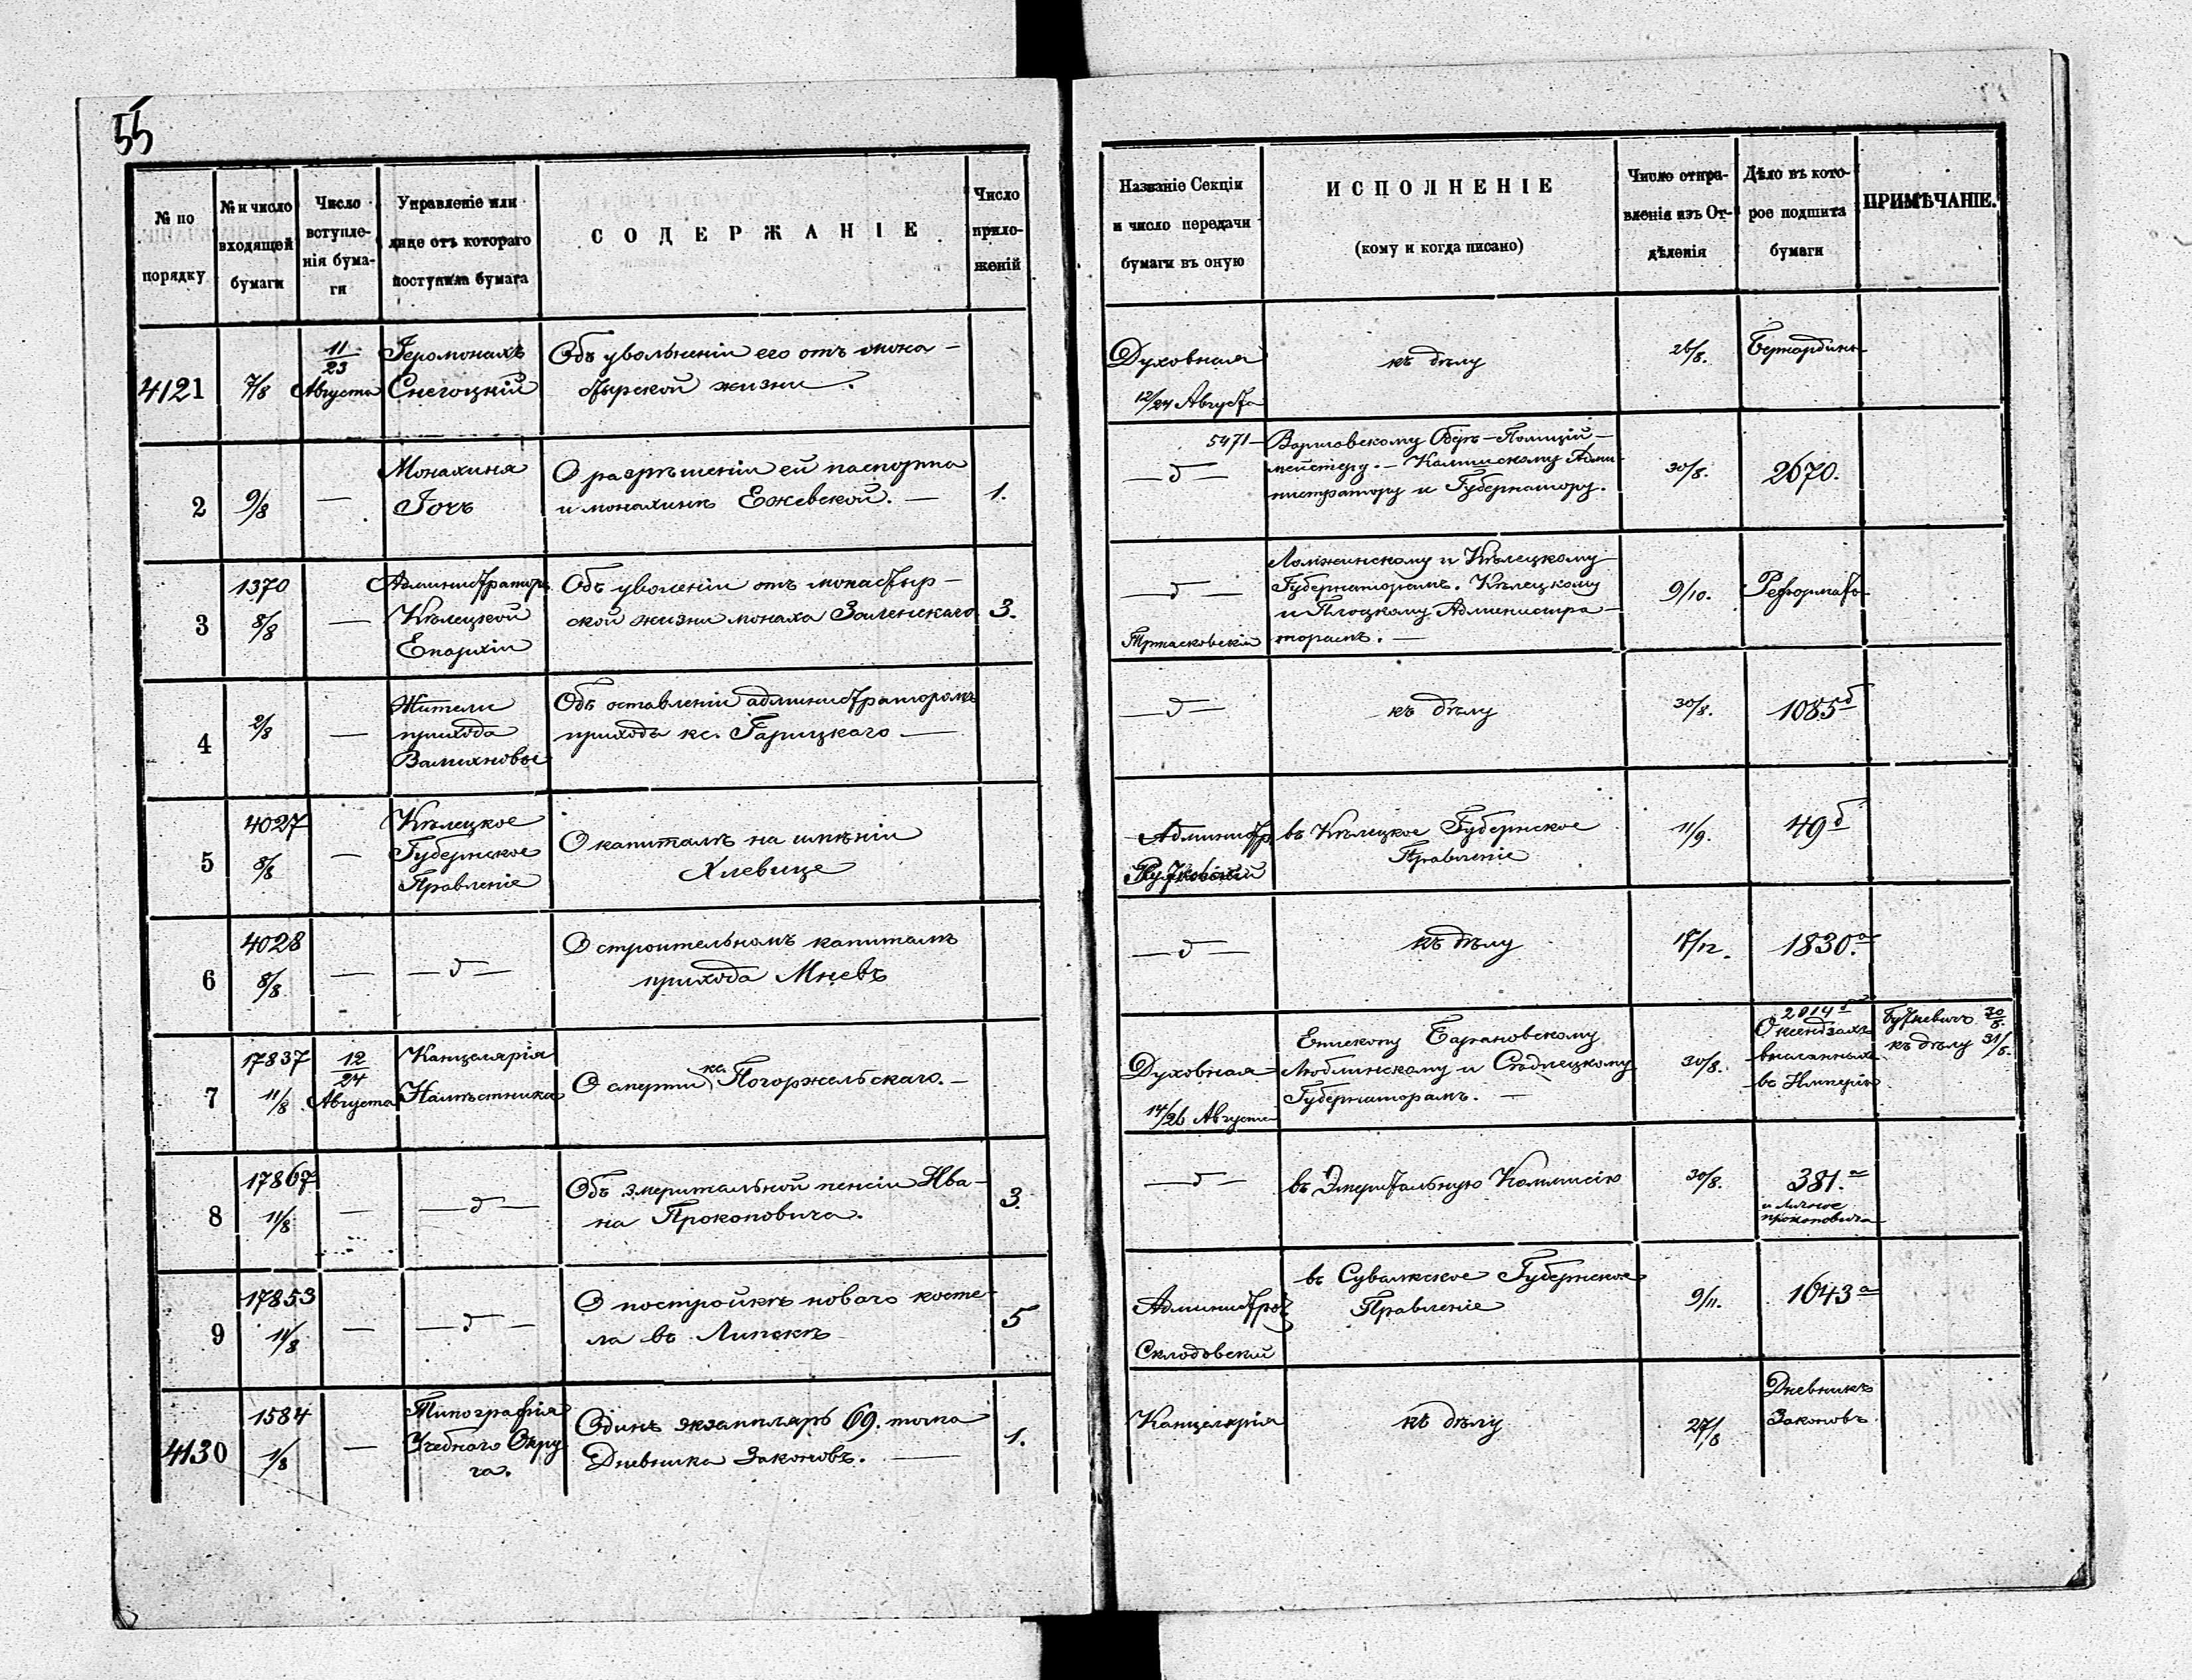 55
№ по порядку
№ и число входящей бумаги
Число вступле-нія бума-ги
Управленіе или лице отъ котораго поступила бумага
СОДЕРЖАНІЕ
Число прило-женій
Названіе Секціи и число передачи бумаги въ оную
ИСПОЛНЕНІЕ
(кому и когда писано)
Число отпра-вленія изъ От-дѣленія
Дѣло въ кото-рое подшита бумаги
ПРИМѢЧАНІЕ.
4121
7/8
11/23
Августа
Іеромонахъ
Снегоцкій
Объ увольненіи его отъ мона-
стырской жизни.
Духовная
12/24 Августа
къ дѣлу
26/8.
Бернардины
2
9/8
—
Монахиня
О разрѣшеніи ей паспорта
и монахинѣ Ежевской. —
1.
— д —
5471 —
Варшавскому Оберъ-Полицій-
мейстеру. — Калишскому Адми-
нистратору и Губернатору.
30/8.
2670.
3
1370
8/8
—
Администраторъ
Кѣлецкой
Епархіи
Объ уволеніи отъ монастыр-
ской жизни монаха Заленскаго
3.
— д —
Ломжинскому и Кѣлецкому
Губернаторамъ. Кѣлецкому
и Плоцкому Администра-
торамъ. —
9/10.
Реформаты
4
2/8
—
Жители
прихода
Объ оставленіи администраторомъ
прихода кс. Гарицкаго —
— д —
къ дѣлу
30/8.
1085 б
5
4027
8/8
—
Кѣлецкое
Губернское
Правленіе
О капиталѣ на имѣніи
Хлевице
Администр.
въ Кѣлецкое Губернское
Правленіе
11/9.
49 б
6
4028
8/8
—
— д —
О строительномъ капиталѣ
прихода Мневъ
— д —
къ дѣлу
17/12.
1830. а
7
17837
11/8
12/24
Августа
Канцелярія
Намѣстника
О смерти кс. Погоржельскаго. —
Духовная
14/26 Августа
Епископу Барановскому
Люблинскому и Сѣдлецкому
Губернаторамъ. —
30/8.
2014 б
О ксендзахъ
высланныхъ
въ Имперію
Буткевичъ 30/5.
къ дѣлу 31/5.
8
17867
11/8
—
— д —
Объ эмеритальной пенсіи Ива-
на Прокоповича.
3.
— д —
въ Эмеритальную Коммисію
30/8.
381. а
и личное
Прокоповича
9
17853
11/8
—
— д —
О постройкѣ новаго косте-
ла въ Липскѣ
5
Администр.
Склодовскій
въ Сувалкское Губернское
Правленіе
9/11.
1643 а
4130
1584
1/8
—
Типографія
Учебнаго Окру
га.
Одинъ экземпляръ 69. тома
Дневника Законовъ. —
1.
Канцелярія
къ дѣлу
27/8
Дневникъ
Законовъ